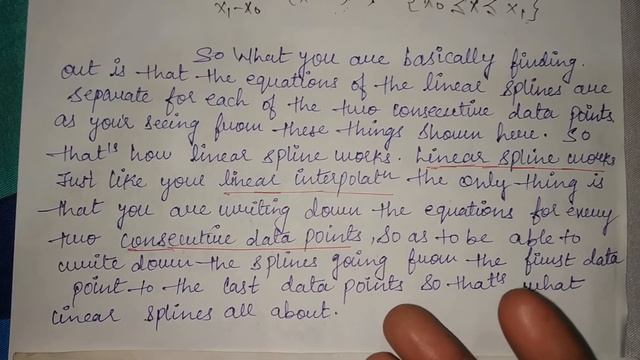 x₁-x₀ {x₀ ≤ x ≤ x₁}
So What you are basically finding
out is that the equations of the linear splines are
separate for each of the two consecutive data points
as your seeing from these things shown here. So
that's how linear spline works. Linear spline works
Just like your linear interpolatn the only thing is
that you are writing down the equations for every
two consecutive data points, so as to be able to
write down the splines going from the first data
point to the last data points so that's what
linear splines all about.